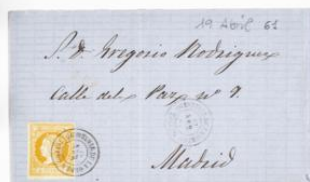 19 Abril 61
S. D. Gregorio Rodriguez
Calle del Paz nº 9.
Madrid